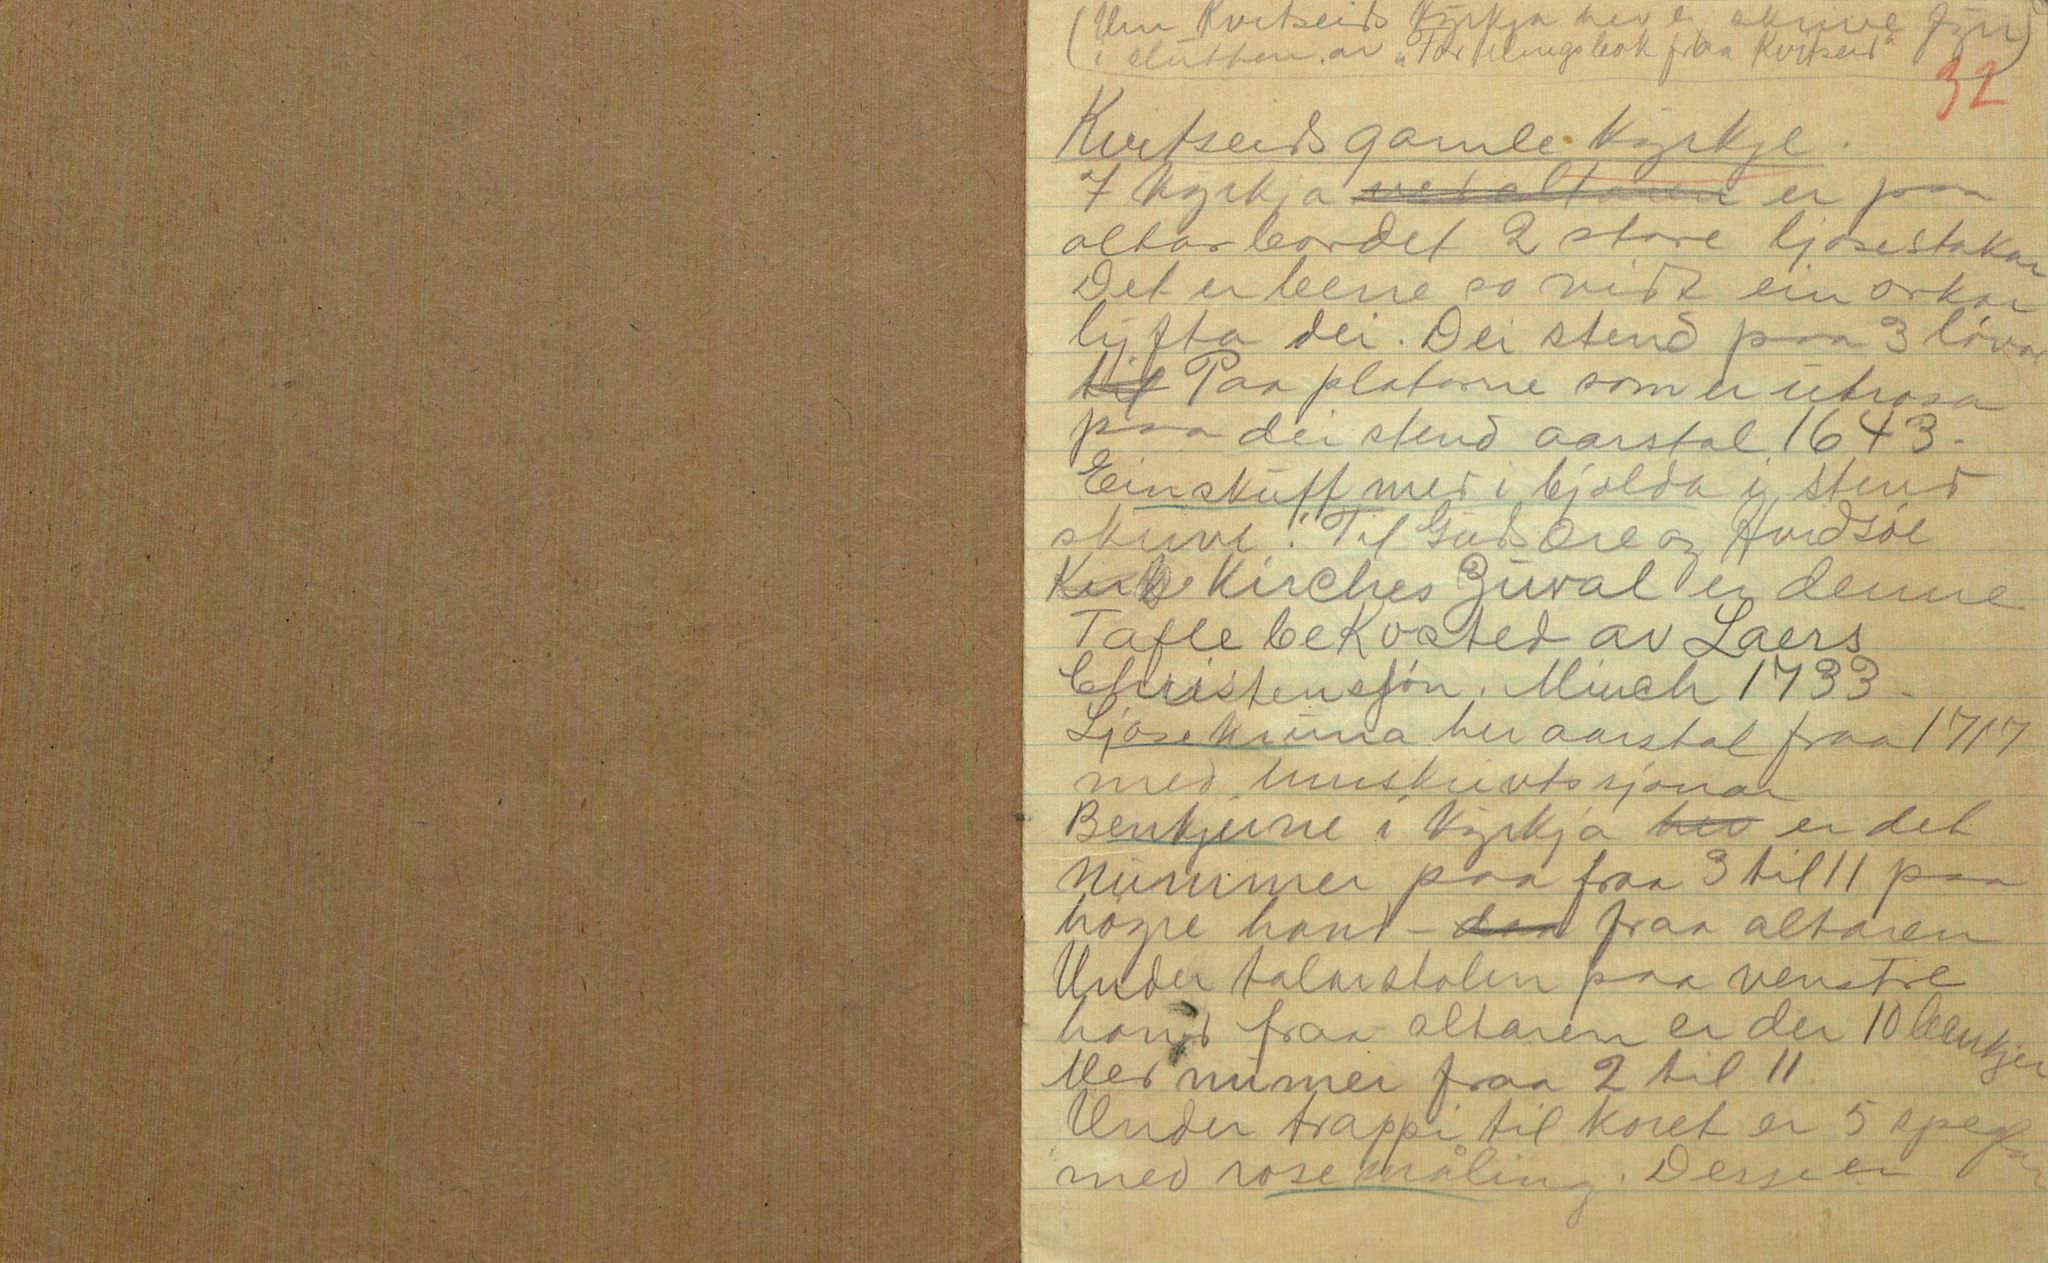 (Um Kvitseids Kyrkja hev eg skrive fyrr)
i slutten av "Fortelingsbok fraa Kvitseid"
32
Kvitseids gamle kyrkje.
I kyrkja ved altaren er paa
altarbordet 2 store ljosestakar
Det er berre so vidt ein orkar
lyfta dei. Dei stend paa 3 lóvar
til Paa platorne som er
paa dei stend aarstal 1643.
Ein skuff med i bjølda i stend
skrive: "Til Guds Ære og Hvidsøe
Kirke Kirches Zürat er denne
Tafle beKosted av Laers
Christensøn. Münch 1733.
Ljosekruna hev aarstal fraa 1717
med umskrivtssjonar
Benkjerne i kyrkja hev er det
nummer paa fraa 3 til 11 paa
høgre hand – fraa altaren
Under talarstolen paa venstre
hand fraa altaren er der 10 benkjer
Med numer fraa 2 til 11.
Under trappi til koret er 5 speglar
med rosemåling. Desse er